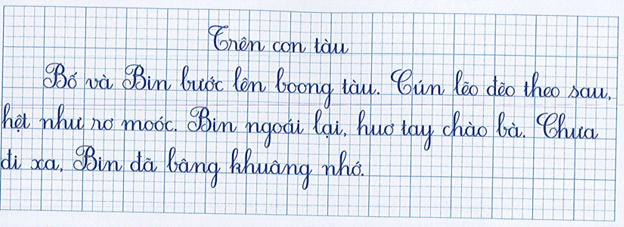 Trên con tàu
Bố và Bin bước lên boong tàu. Cún lẽo đẽo theo sau,
hệt như rơ moóc. Bin ngoái lại, huơ tay chào bà. Chưa
đi xa, Bin đã bâng khuâng nhớ.